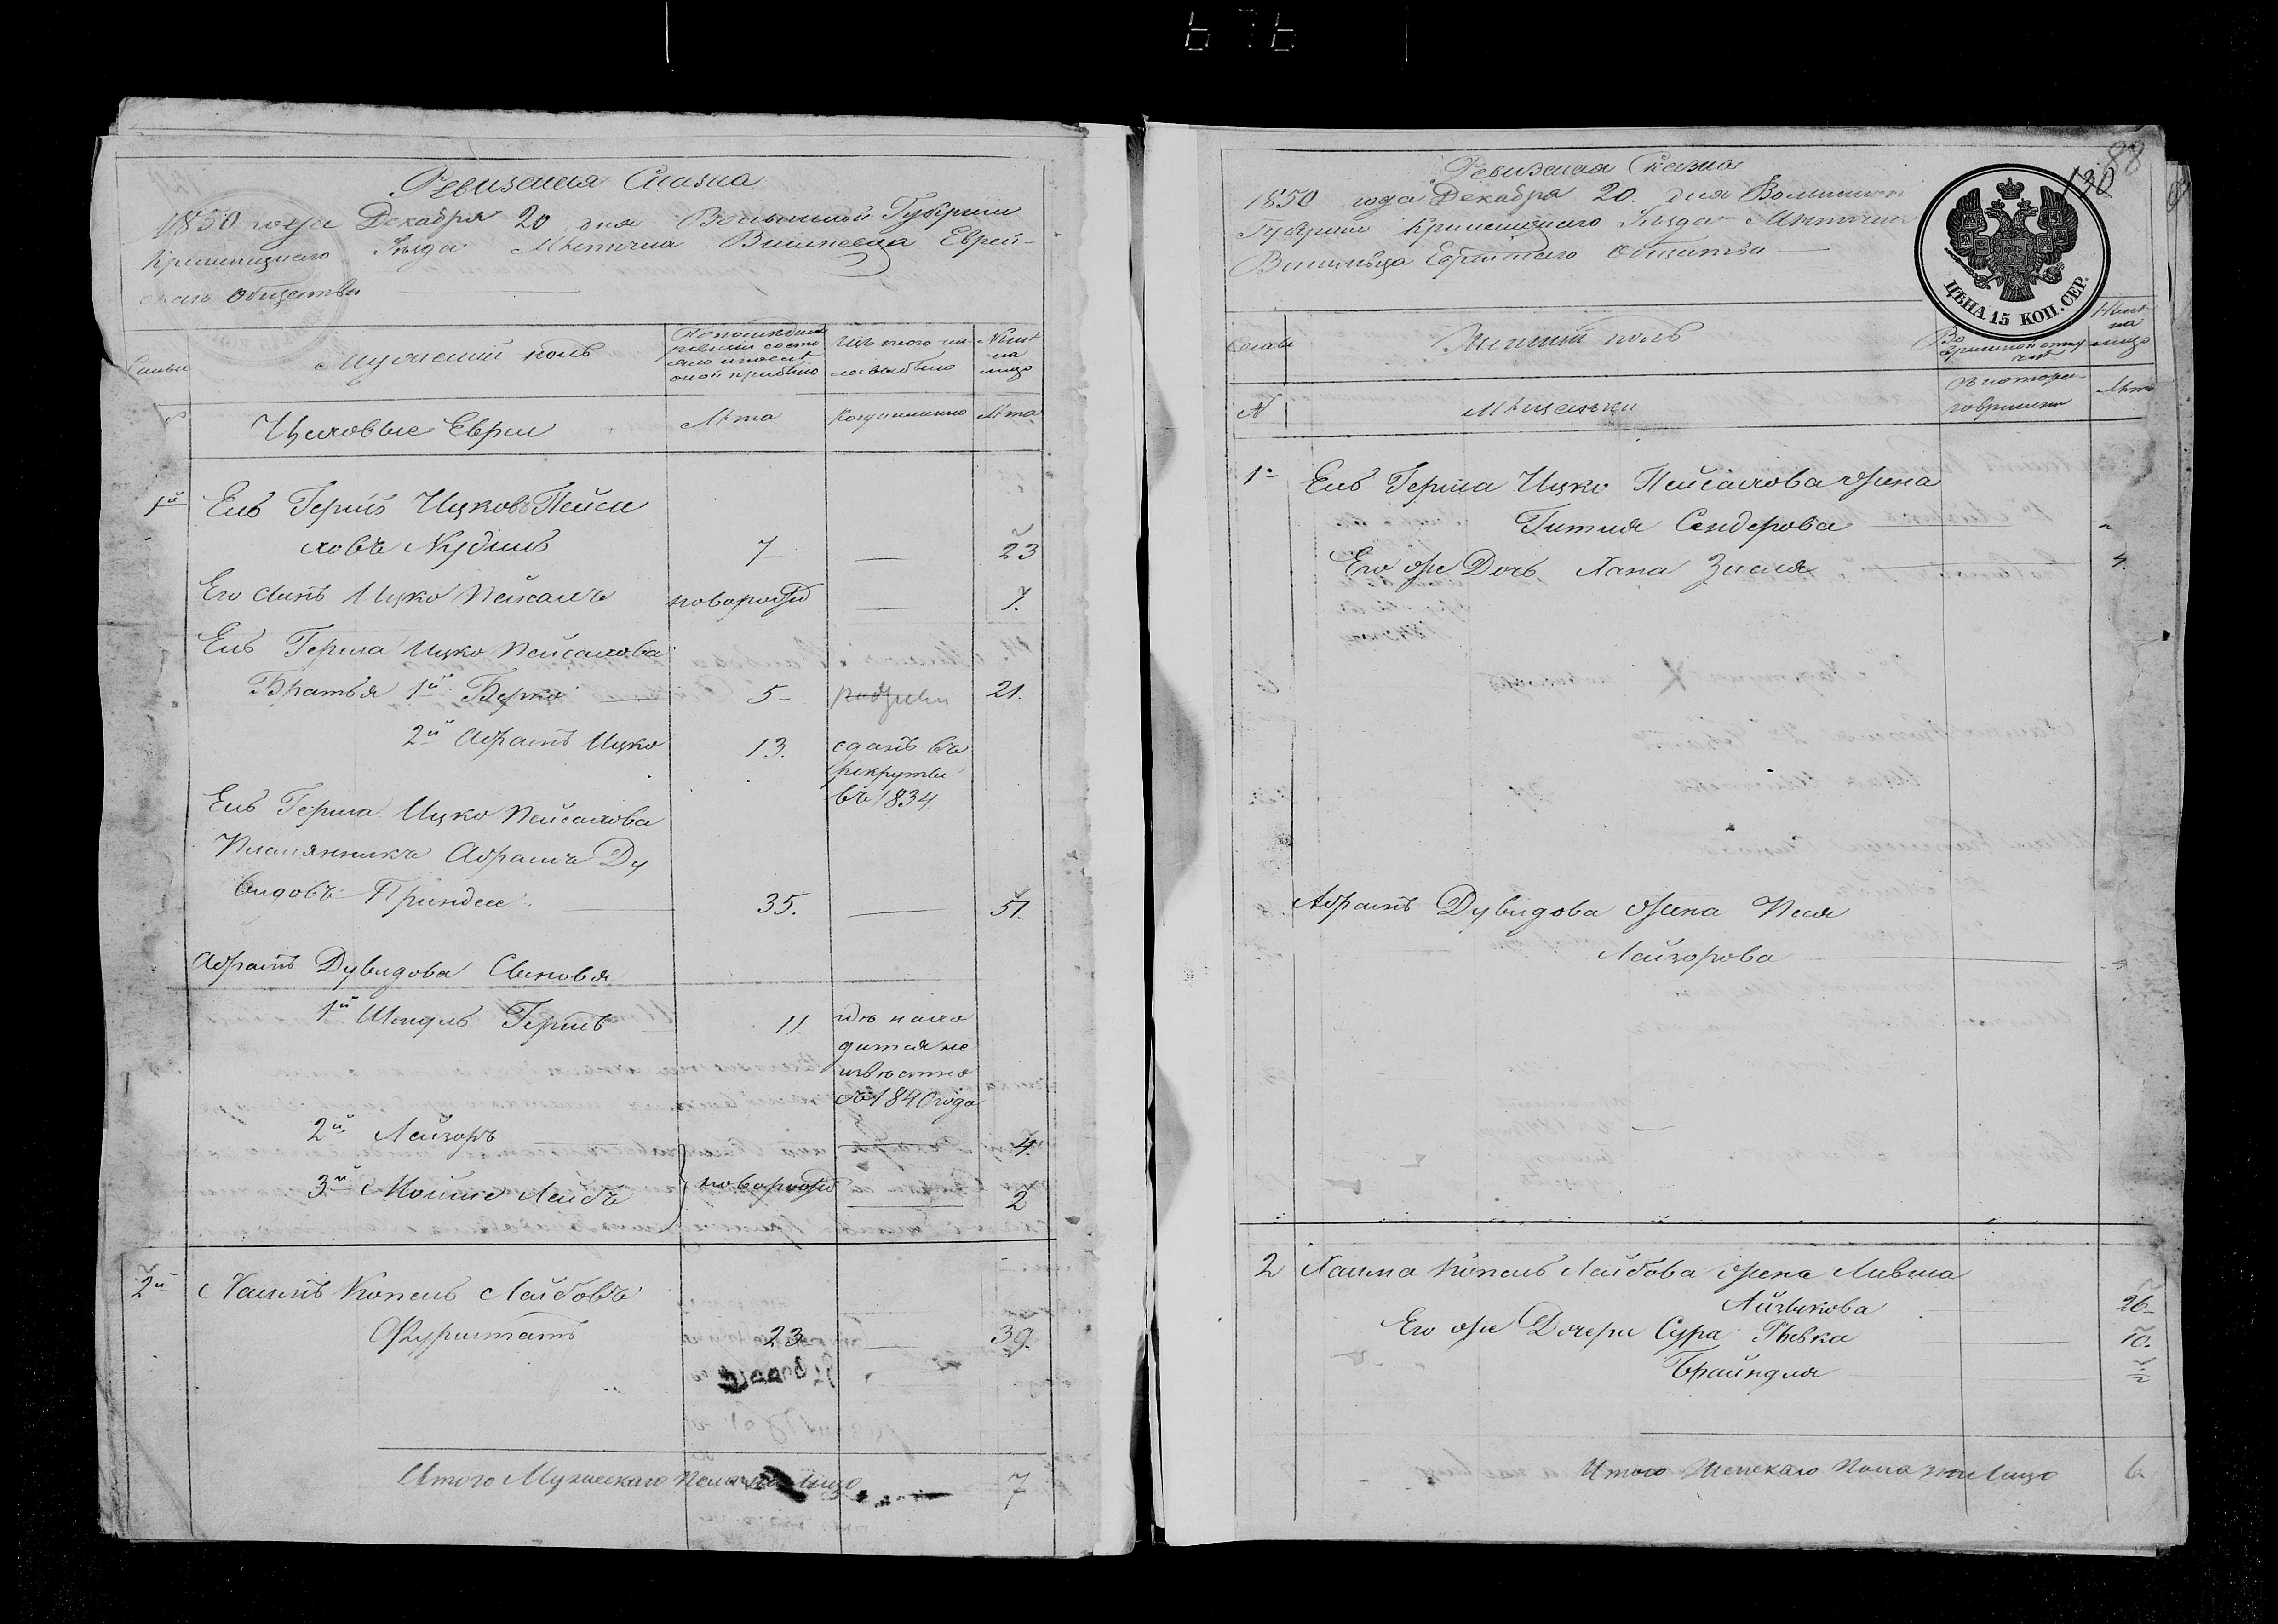 Ревизская Сказка
1850 года Декабря 20 дня Волынской Губернии
Кременецкаго Уезда Местечка Вишневца Еврей-
скаго Общества
Семьи
Мужеский полъ
По последней
ревизии состо
яло и после
оной прибыло
Изъ того чи
сла выбыло
Ныне
на
лицо
№
Цеховые Евреи
Лета
Когда именно
Лета
1й Ель Гершъ Ицковъ Пейса
ховъ Кудишъ 7 — 23
Его сынъ Ицко Пейсахъ новорожд — 7.
Ель Герша Ицко Пейсахова
Братья 1й Берко 5 21.
2й Абрамъ Ицко 13. сданъ въ
рекруты
въ 1834
Ель Герша Ицко Пейсахова
Племянникъ Абрамъ Ду
видовъ 35. — 51.
Абрамъ Дувидова Сыновья
1й Шмуль Гершъ 11. где нахо
дится не
известно
съ 1840 года
2й Лейзоръ 4.
3й Мошко Лейбъ новорожд 2
2й Хаимъ Копель Лейбовъ
Фурштатъ 23 — 39.
Итого Мужескаго Пола на Лицо 7
88
130
Ревизская Сказка
1850 года Декабря 20. дня Волынской
Губернии Кременецкаго Уезда Местечка
Вишневца Еврейскаго Общества
ЦѢНА 15 КОП. СЕР.
Семьи
Женский полъ
Во
временной отлу
чке
Ныне
на
лицо
№
Мещанки
Съ котораго
времени
Лета
1й Ель Герша Ицко Пейсахова жена
Гитля Сендерова
Его же Дочь Хана Зисля 4.
Абрамъ Дувидова жена Песя
Лейзорова
2 Хаима Копель Лейбова жена Ливша
Айзыкова 26
Его же Дочери Сура Ривка 10.
Брайндля
Итого Женскаго Пола на Лицо 6.